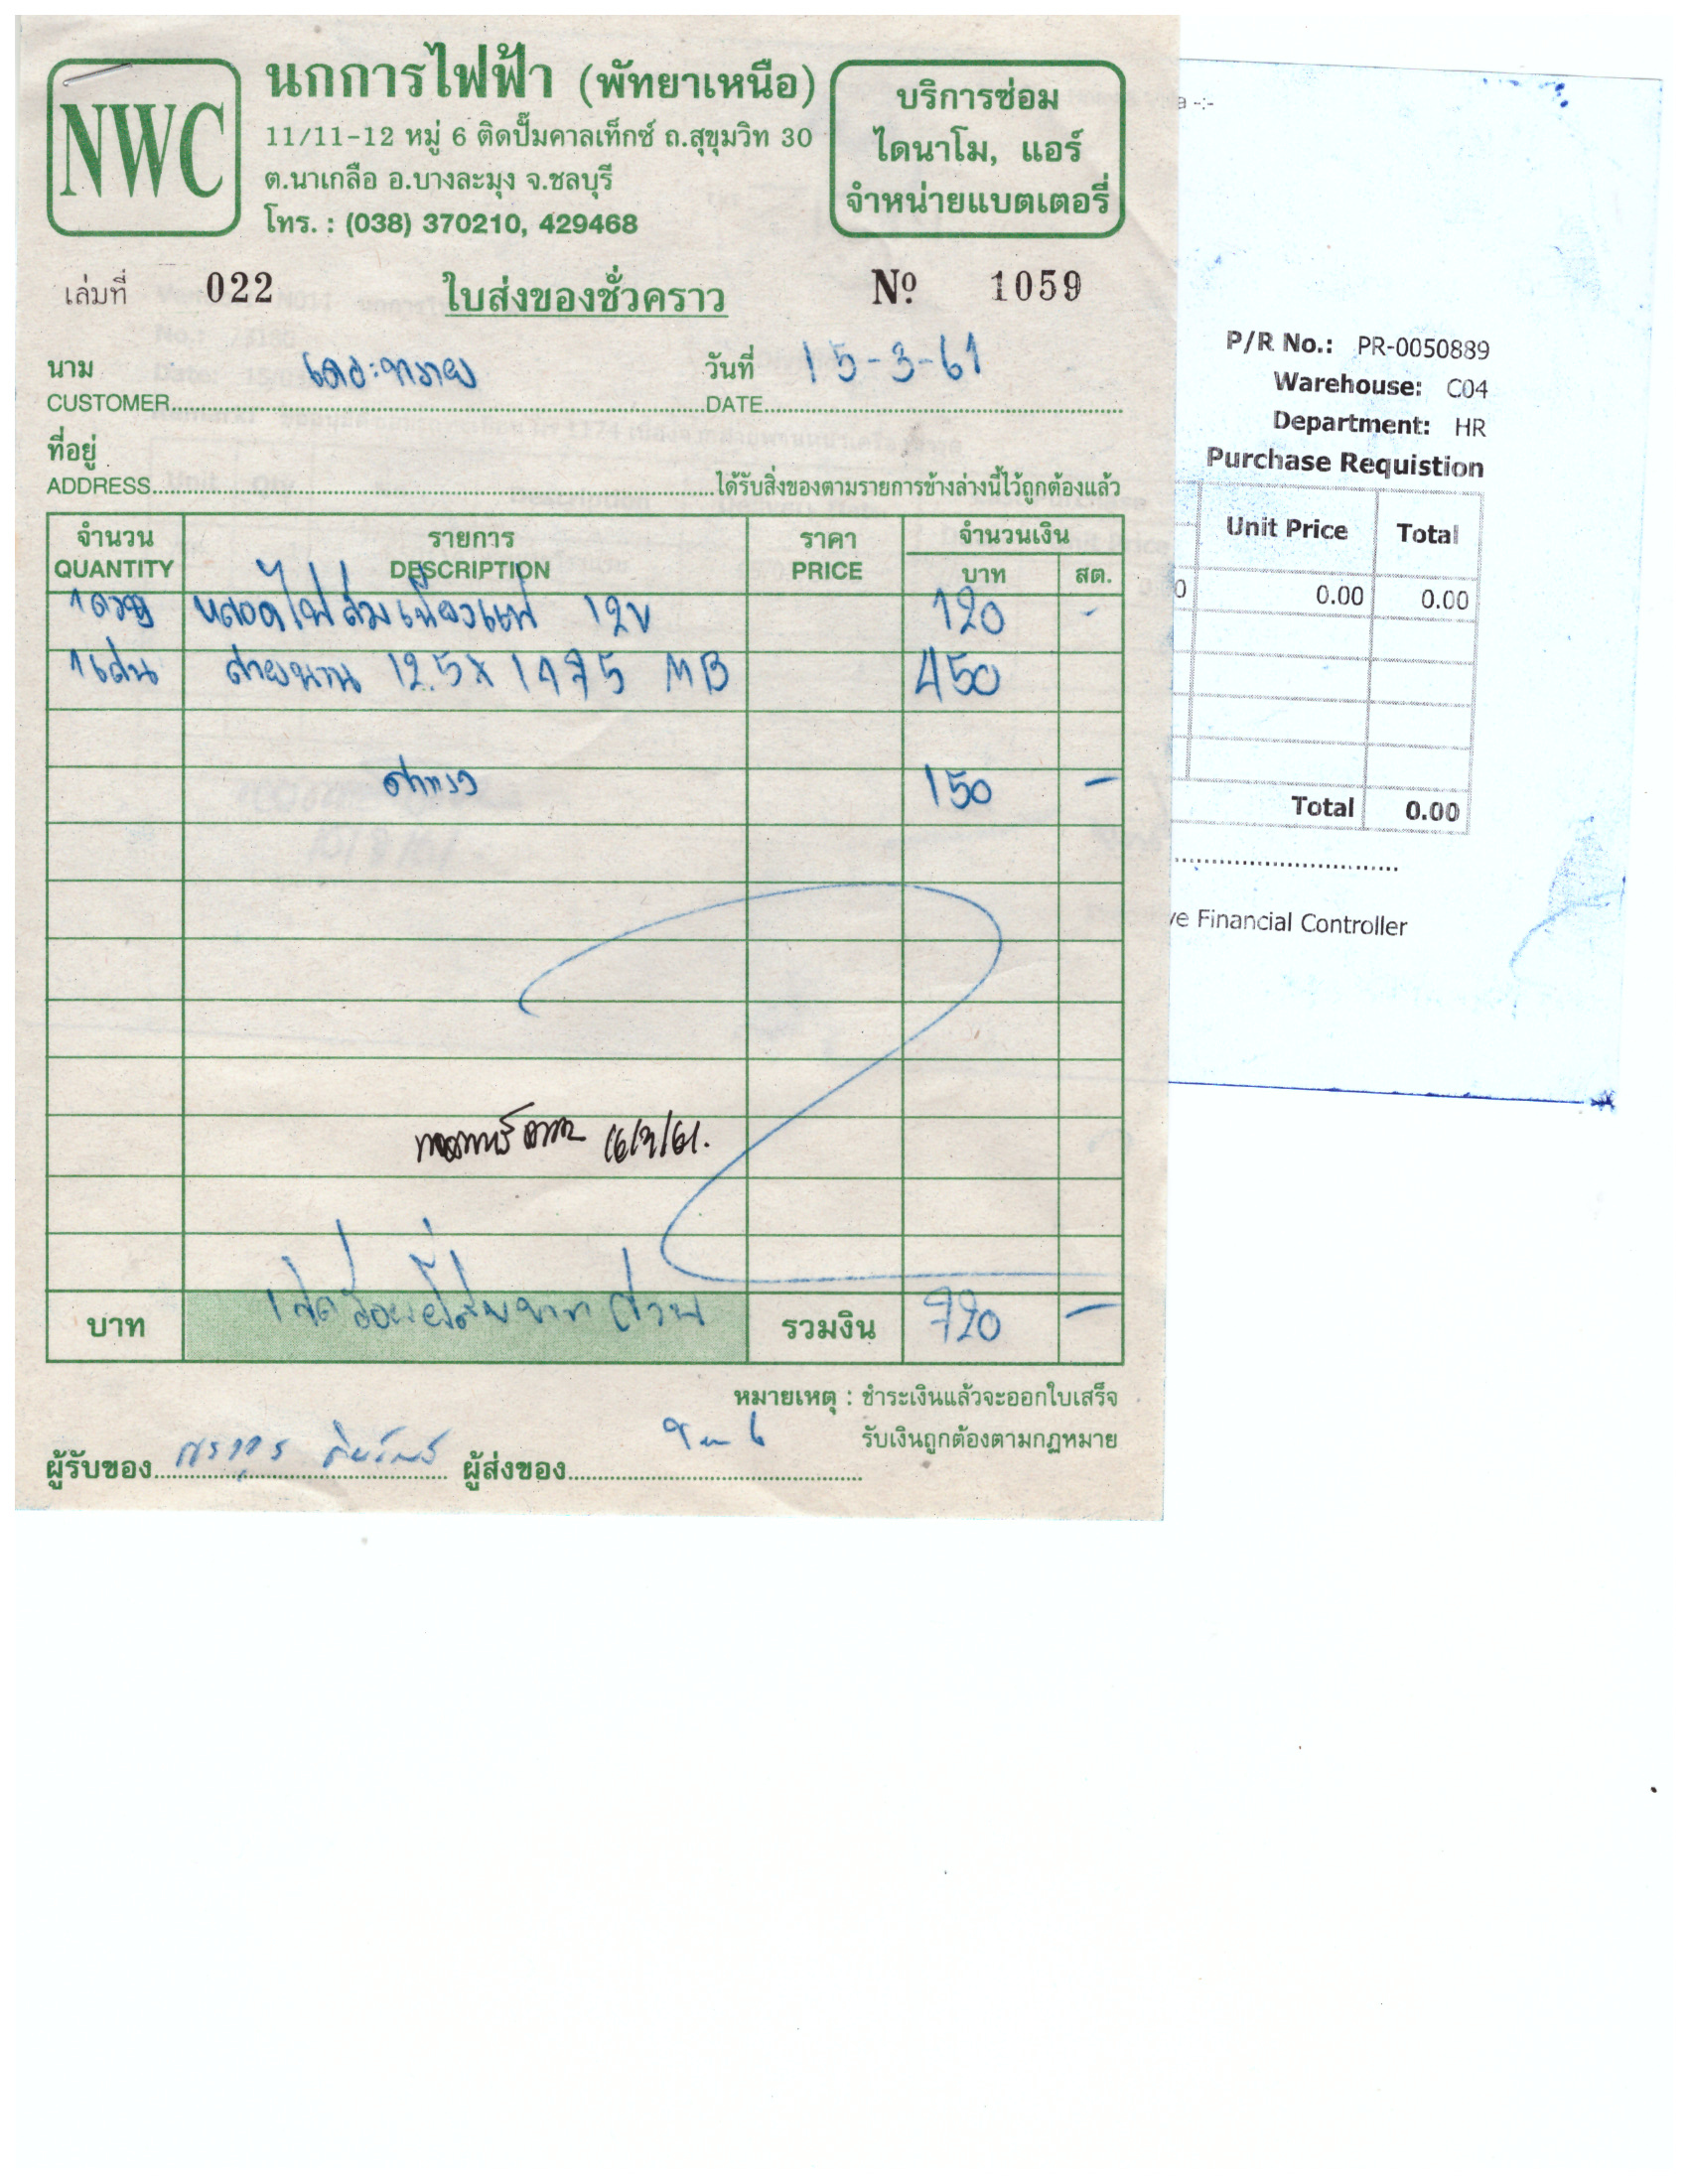 NWC
นกการไฟฟ้า (พัทยาเหนือ)
11/11-12 หมู่ 6 ติดปั๊มคาลเท็กซ์ ถ.สุขุมวิท 30
ต.นาเกลือ อ.บางละมุง จ.ชลบุรี
โทร. : (038) 370210, 429468
บริการซ่อม
ไดนาโม, แอร์
จำหน่ายแบตเตอรี่
เล่มที่ 022
ใบส่งของชั่วคราว
Nº 1059
นาม วันที่ 15-3-61
CUSTOMER DATE
ที่อยู่
ADDRESS ได้รับสิ่งของตามรายการข้างล่างนี้ไว้ถูกต้องแล้ว
จำนวน รายการ ราคา จำนวนเงิน
QUANTITY DESCRIPTION PRICE บาท สต.
1 ดวง หลอดไฟ 12V 120 -
1 เส้น สายพาน 12.5X1475 MB 450
ค่าแรง 150 -
16/3/61.
บาท เจ็ดร้อยยี่สิบบาทถ้วน รวมงิน 720 -
หมายเหตุ : ชำระเงินแล้วจะออกใบเสร็จ
รับเงินถูกต้องตามกฎหมาย
ผู้รับของ ผู้ส่งของ
P/R No.: PR-0050889
Warehouse: C04
Department: HR
Purchase Requistion
Unit Price Total
0.00 0.00
Total 0.00
Financial Controller